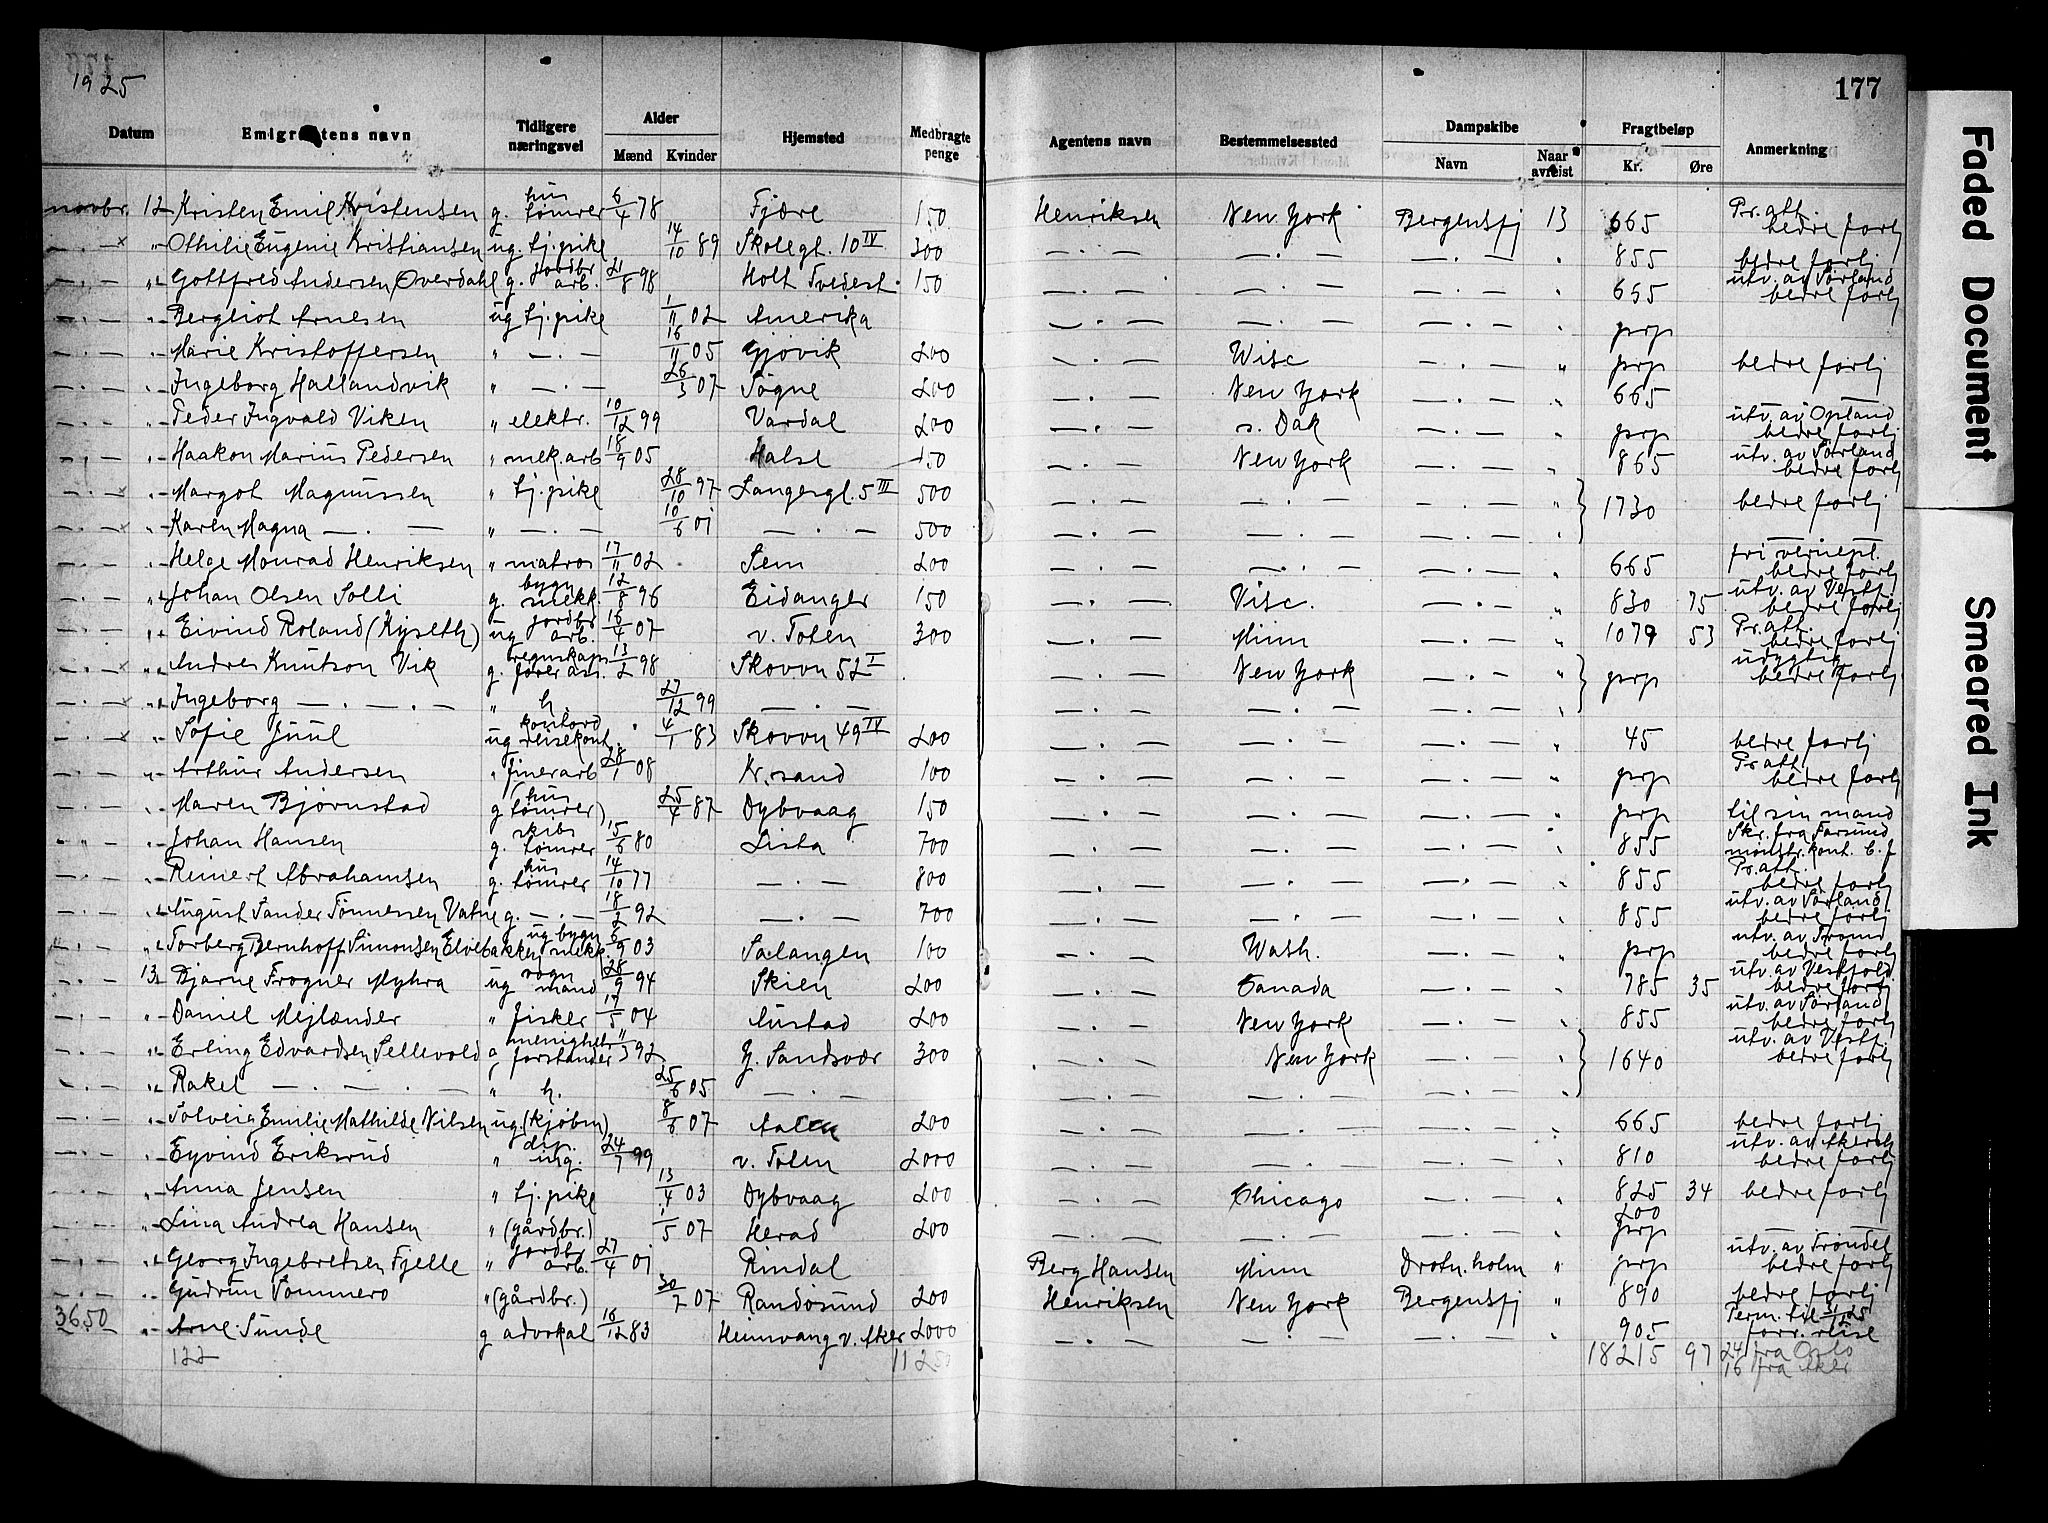 1925
177
Datum Emigrantens navn Tidligere næringsvei Alder Mænd Kvinder Hjemsted Medbragte penge Agentens navn Bestemmelsessted Dampskibe Navn Naar avreist Fragtbeløp Kr. Øre Anmerkning
novbr. 12 Kristen Emil Kristensen g. hus tømrer 6/4 78 Fjære 150 Henriksen New York Bergensfj 13 665 Pr. att. bedre forhj
" Othilie Eugenie Kristiansen ug. tj. pike 14/10 89 Skolegt. 10 IV 300 " 855 bedre forhj
" Gottfred Andersen Øverdahl g. jordbr. arb. 21/8 98 Holt Tvedest. 150 " 655 utv. av Sørland bedre forhj
" Bergliot Arnesen ug tj. pike 1/11 02 Amerika " prp
" Marie Kristoffersen " 16/11 05 Gjøvik 200 Wisc " prp bedre forhj
" Ingeborg Hallandvik " 26/3 07 Søgne 200 New York " 665
" Peder Ingvald Viken " elektr. 10/12 99 Vardal 200 s. Dak " prp utv. av Opland bedre forhj
" Haakon Marius Pedersen " mek. arb 18/9 05 Halse 150 New York " 865 utv. av Sørland bedre forhj
" Margot Magnussen " tj. pike 28/10 97 Langesgt. 5 III 500 " 1730 bedre forhj
" Karen Magna " 10/6 01 500
" Helge Monrad Henriksen " matros 17/11 02 Sem 200 " 665 fri vernepl. bedre forhj
" Johan Olsen Solli g. bygn snekk. 12/8 96 Eidanger 150 Wisc. " 830 75 utv. av Vestf. bedre forhj
" Eivind Roland (Kyseth) ug jordbr arb. 16/4 07 v. Toten 300 Minn " 1079 53 Pr. att. bedre forhj
" Andres Knutson Vik g. regnskaps fører ass. 13/2 98 Skovvn 52 I New York " prp udygtig bedre forhj
" Ingeborg " h. 27/12 99
" Sofie Juul ug kontord reisekont. 4/1 83 Skovvn 49 IV 200 " 45 bedre forhj
" Arthur Andersen " finerarb 28/1 08 Kr. sand 100 " prp Pr. att. bedre forhj
" Maren Bjørnstad g (hus tømrer) 25/4 87 Dybvaag 150 " prp til sin mand
" Johan Hansen g. skibs tømrer 15/6 80 Lista 700 " 855 Skr. fra Farsund mønstr. kont. b. f
" Reinert Abrahamsen g. hus tømrer 14/10 77 800 " 855 Pr. att. bedre forhj
" August Sander Tønnessen Vatne g. 18/2 92 700 " 855 utv. av Sørland bedre forhj
" Torberg Bernhoff Simonsen Elvebakken ug bygn snekk. 6/9 03 Salangen 100 Wash. " prp utv. av Troms bedre forhj
13 Bjarne Frogner Myhra ug vogn mand 28/9 94 Skien 200 Canada 785 35 utv. av Vestfold bedre forhj
" Daniel Mejlænder " fisker 17/5 04 Austad 200 New York " 855 utv. av Sørland bedre forhj
" Erling Edvardsen Sellevold g menighet forstander 11/3 92 Y. Sandsvær 300 New York " 1640 utv. av Vestf. bedre forhj
" Rakel " h. 25/6 05
" Solveig Emilie Mathilde Nilsen ug. (kjøbm) 8/6 07 200 " 665 bedre forhj
" Eyvind Eriksrud " dip. ing. 24/7 99 v. Toten 2000 " 810 utv. av Akersh bedre forhj
" Anna Jensen " tj. pike 13/4 03 Dybvaag 200 Chicago " 825 34 bedre forhj
" Lina Andrea Hansen " (gårdbr.) 1/5 07 Herad 200 " 200 prp
" Georg Ingebretsen Fjelle " jordbr arb. 27/4 01 Rindal Berg Hansen Minn Drotn. holm " prp utv. av Trøndel bedre forhj
" Gudrun Tømmero " (gårdbr.) 30/7 07 Randøsund 200 Henriksen New York Bergensfj " 890 bedre forhj
3650 " Arne Sunde g advokat 16/12 83 Heimvang v. Aker 2000 " 905 Perm. til 31/12 25 forr. reise
122 11250 18215 97 24 fra Oslo
16 fra Aker
Faded Document
Smeared Ink